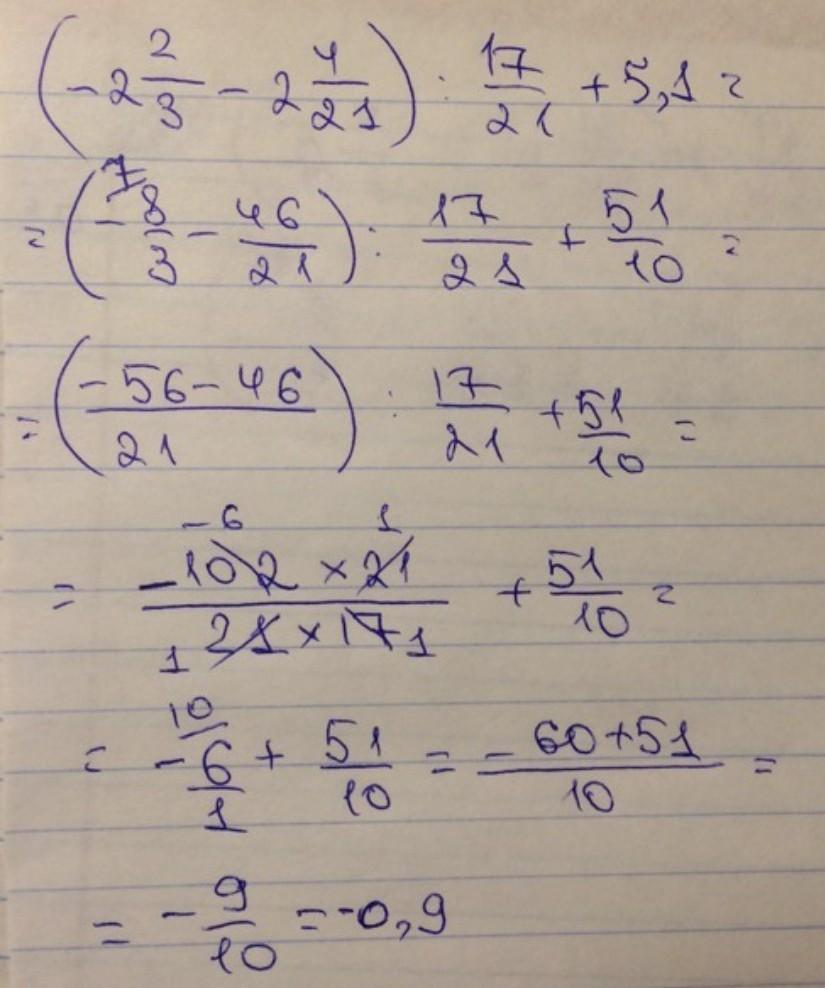 (-2 2/3 - 2 4/21) : 17/21 + 5,1 =
= (-8/3 (7) - 46/21) : 17/21 + 51/10 =
= ((-56-46)/21) : 17/21 + 51/10 =
= (-102 (-6) × 21 (1))/(21 (1) × 17 (1)) + 51/10 =
= -6/1 (10) + 51/10 = (-60+51)/10 =
= -9/10 = -0,9